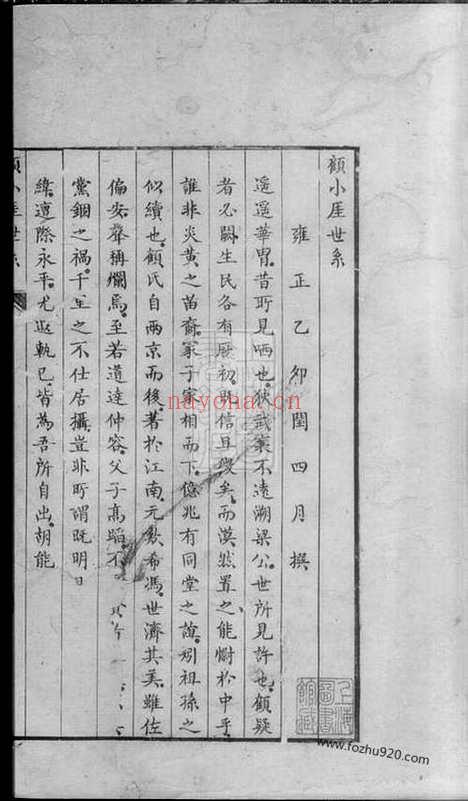 顧小厓世系
雍正乙卯閏四月撰
遥遥華胄昔所見哂也狄武襄不遠溯梁公世所見許也顧疑
者必闕生民各有厥初既信且徵矣而漠然置之能慰於中乎
誰非炎黄之苗裔冡子家相而下億兆有同堂之誼矧祖孫之
似續也顧氏自兩京而後著於江南元歎希馮世濟其美雖在
偏安聲稱爛焉至若道達仲容父子高蹈不
黨錮之禍千里之不仕居攝豈非所謂既明且
緯遭際永平尤遐軌已皆為吾所自出胡能
顧小厓世系
nayona.cn
上海圖書館藏
www.fozhu920.com